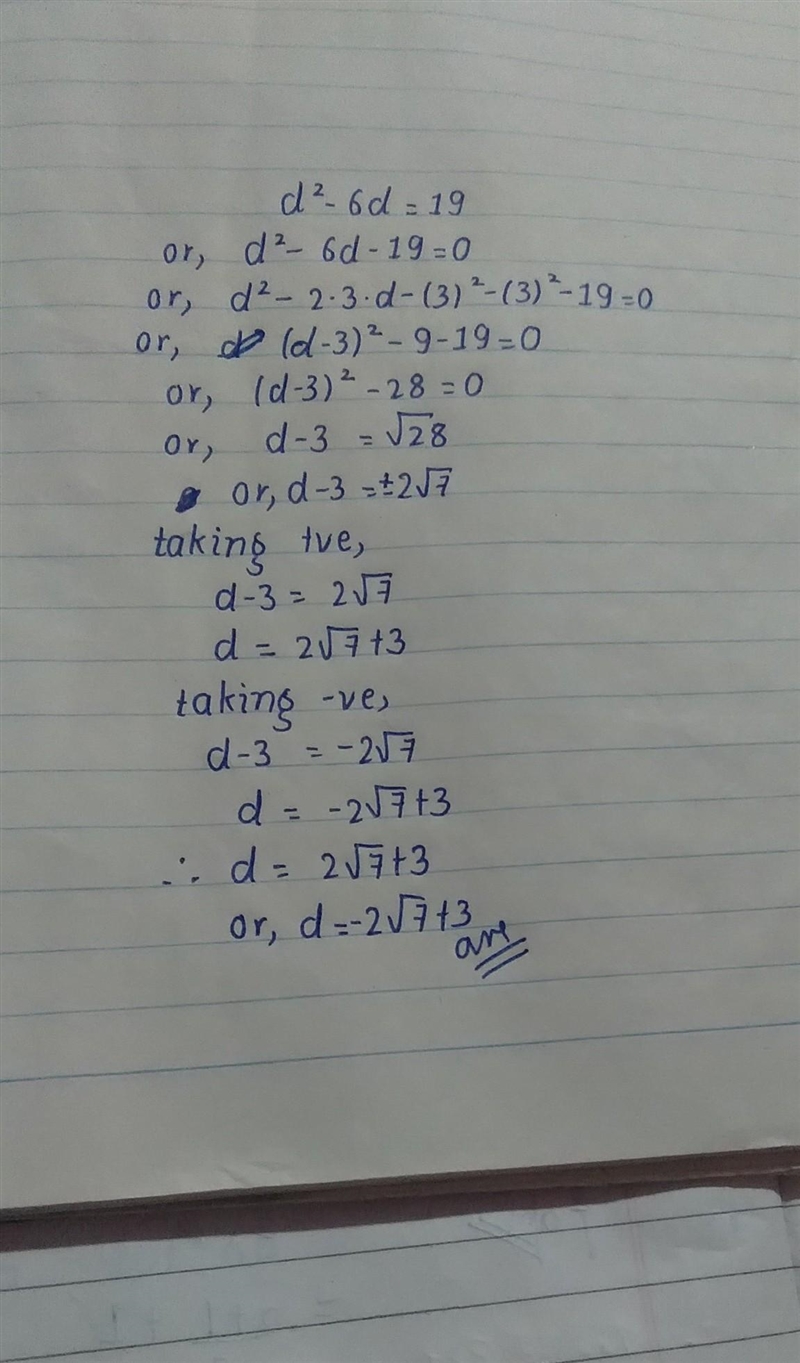 d² - 6d = 19
or, d² - 6d - 19 = 0
or, d² - 2·3·d - (3)² - (3)² - 19 = 0
or, (d-3)² - 9 - 19 = 0
or, (d-3)² - 28 = 0
or, d-3 = √28
or, d-3 = ±2√7
taking +ve,
d-3 = 2√7
d = 2√7+3
taking -ve,
d-3 = -2√7
d = -2√7+3
∴ d = 2√7+3
or, d = -2√7+3